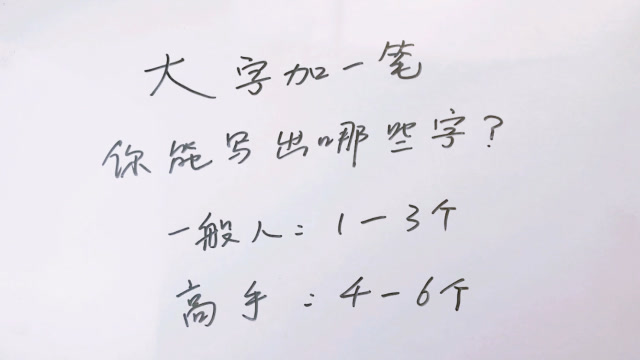 大字加一笔
你能写出哪些字?
一般人:1一3个
高手:4-6个